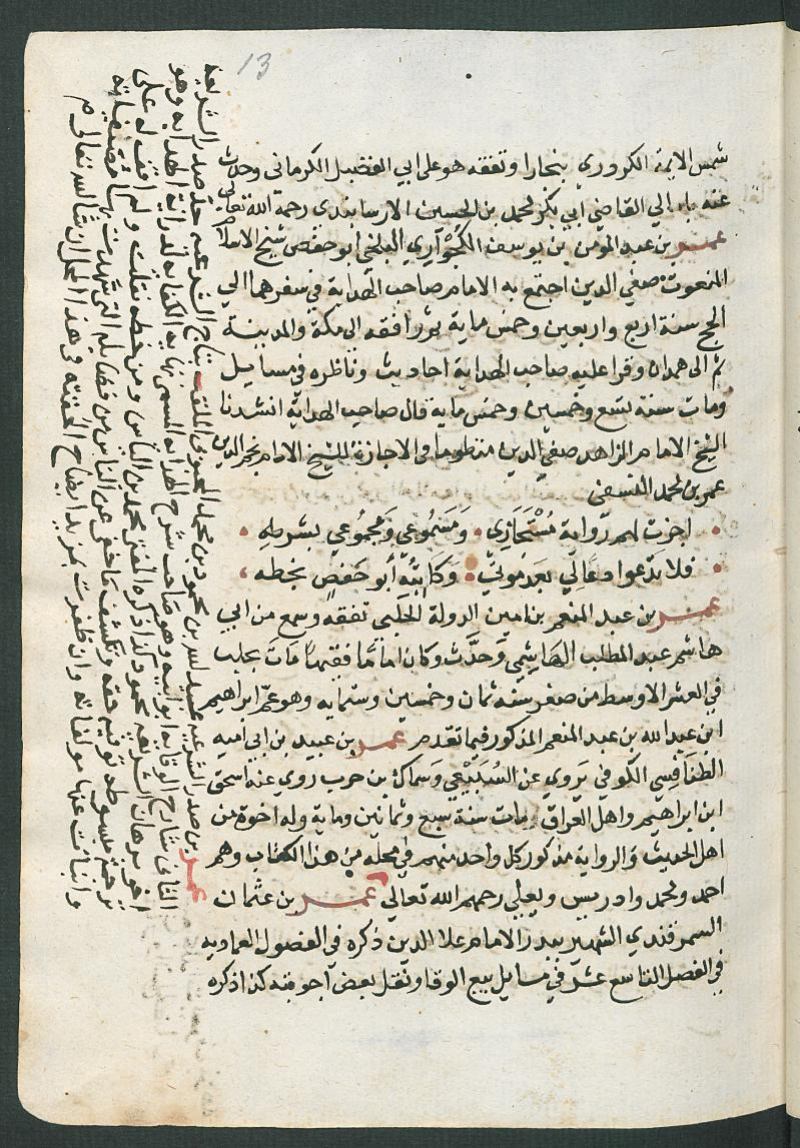 13
شمس الايمة الكروري ببخارا وتفقه هو على ابي الفضل الكرماني وحدث
عنه باملي القاضي ابي بكر محمد بن الحسين الارسابندي رحمة الله تعالى
عمر بن عبد المومن بن يوسف الكجواري البلخي ابو حفص شيخ الاسلام
المنعوت صفي الدين اجتمع به الامام صاحب الهداية في سفرهما الي
الحج سنة اربع واربعين وخمس ماية ثم رافقه الى مكة والمدينة
ثم الى همدان وقرا عليه صاحب الهداية احاديث وناظره في مسايل
ومات سنة تسع وخمسين وخمس ماية قال صاحب الهداية انشدنا
الشيخ الامام الزاهد صفي الدين منظوما في الاجازة للشيخ الامام نجم الدين
عمر بن محمد النسفى
اجزت لهم رواية مستجازي ومسموعي ومجموعي بشرطه
فلا يدعوا دعا لي بعد موتي وكاتبه أبو حفص بخطه
عمر بن عبد المنعم بن امين الدولة الحلبي تفقه وسمع من ابي
هاشم عبد المطلب الهاشمي وحدث وكان اماما فقيها مات بحلب
في العشر الاوسط من صفر سنه ثمان وخمسين وستمايه وهو عم ابراهيم
ابن عبد الله بن عبد المنعم المذكور فيما تقدم عمر بن عبيد بن ابي اميه
الطنافسي الكوفي يروي عن السبيعي وسماك بن حرب روي عنه اسحق
ابن ابراهيم واهل العراق مات سنة سبع وثمانين وماية وله اخوة من
اهل الحديث والرواية مذكور كل واحد منهم في محله من هذا الكتاب وهم
احمد ومحمد وادريس ويعلي رحمهم الله تعالي عمر بن عثمان
السمرقندي الشهير ببدر الامام علا الدين ذكره في الفصول العماديه
في الفصل التاسع عشر في مسايل بيع الوفا ونقل بعض اجوبته كذا ذكره
عمر بن صدر الشريعه عبيد الله بن محمود بن محمد المحبوبي الملقب بتاج الشريعه جد صدر الشريعه
الثاني شارح الوقايه ابو ابيه وهو صاحب شرح الهدايه المسمى نهايه الكفايه لدرايه الهدايه وهو
اخو برهان الشريعه محمود كذا ذكره المفتي محمد بن الياس ومن خطه نقلت ولم اقف له على
ترجمة مبسوطه توفيه حقه وتكشف ما خفي عن الناس من فضايله التي شهدت بها مصنفاته
وانبات عنها مولفاته وان ظفرت بمزيد ايضاح الحقته في هذا المحل ان شا الله تعالى